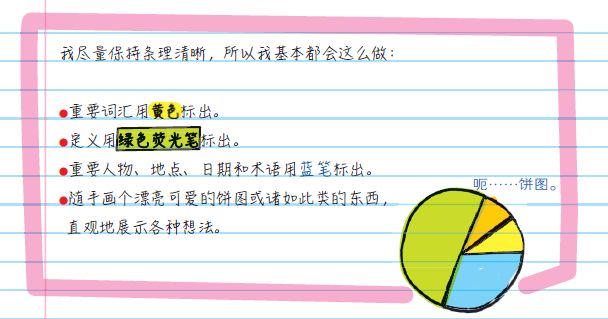 我尽量保持条理清晰，所以我基本都会这么做：
●重要词汇用黄色标出。
●定义用绿色荧光笔标出。
●重要人物、地点、日期和术语用蓝笔标出。
●随手画个漂亮可爱的饼图或诸如此类的东西，
直观地展示各种想法。
呃……饼图。